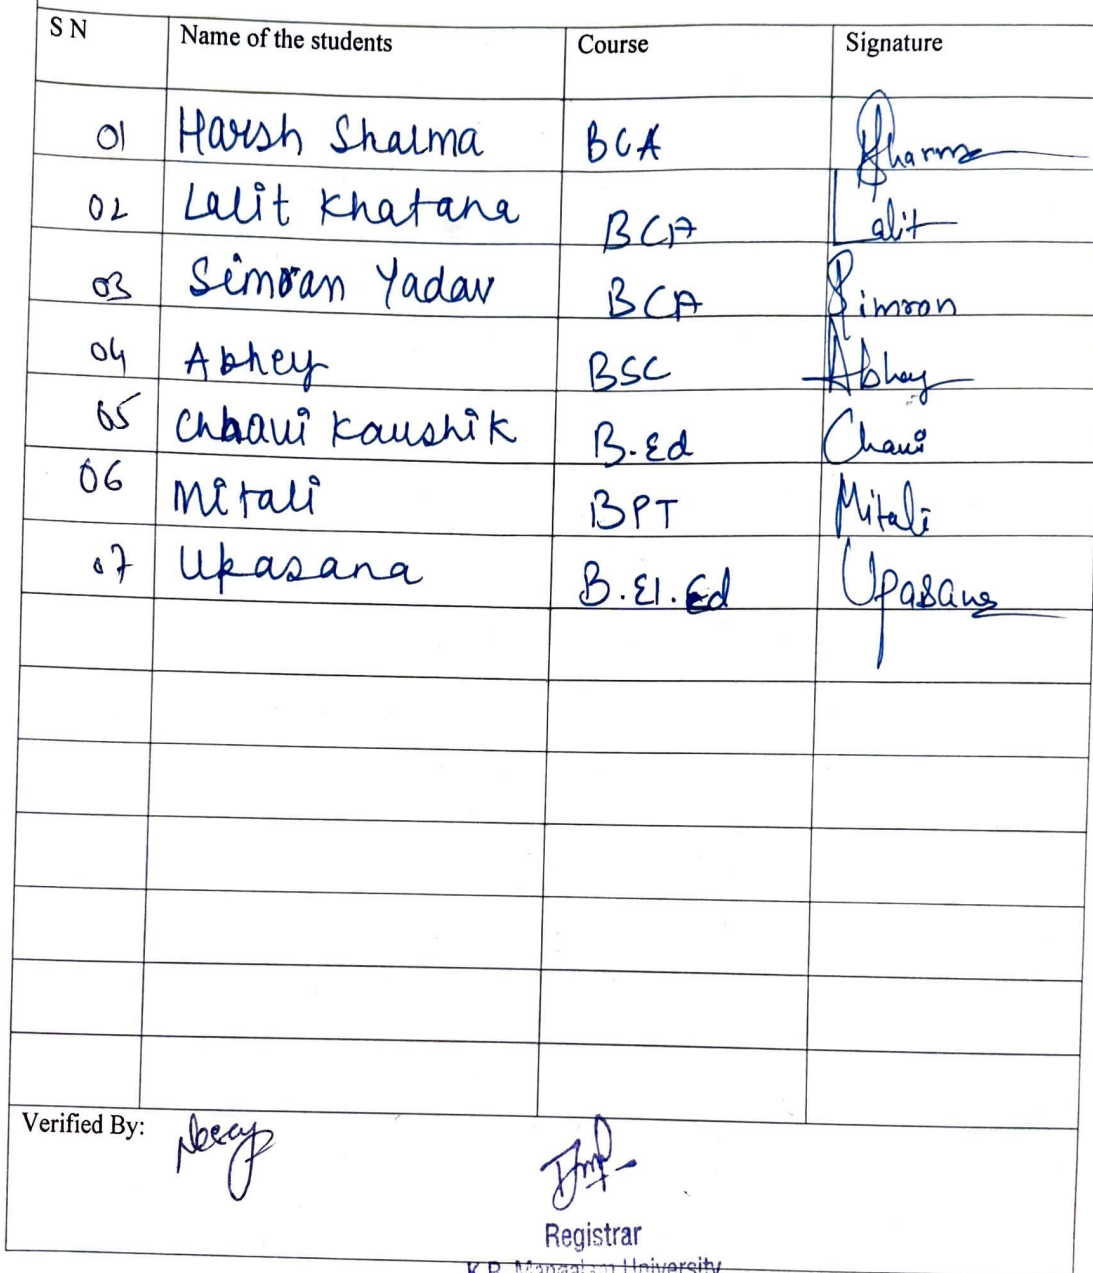 S N Name of the students Course Signature
01 Harsh Sharma BCA Sharma
02 Lalit Khatana BCA Lalit
03 Simran Yadav BCA Simran
04 Abhey BSC Abhey
05 Chhavi Kaushik B.Ed Chavi
06 Mitali BPT Mitali
07 Upasana B.El.Ed Upasana
Verified By:
Registrar
K.R. Mangalam University